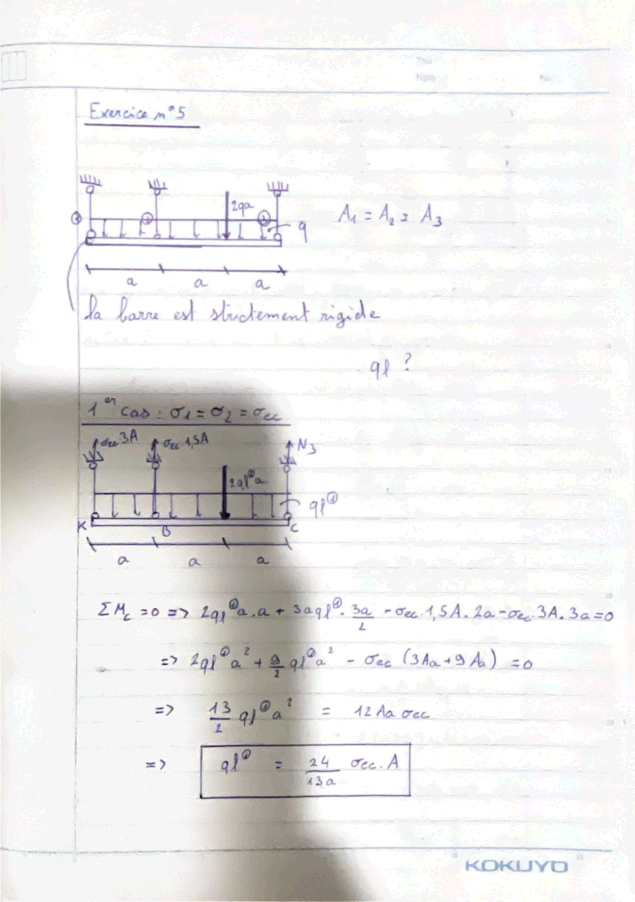 Exercice n°5
2qa
q
A₁ = A₂ = A₃
a a a
la barre est strictement rigide
ql ?
1er cas : σ1 = σ2 = σec
σec 3A σec 1,5A N3
2ql①a
ql①
K B C
a a a
ΣMc = 0 => 2ql①a.a + 3aql①. 3a/2 - σec. 1,5A. 2a - σec. 3A. 3a = 0
=> 2ql①a² + 9/2 ql①a² - σec (3Aa + 9Aa) = 0
=> 13/2 ql①a² = 12Aa σec
=> ql① = 24/13a σec. A
KOKUYO